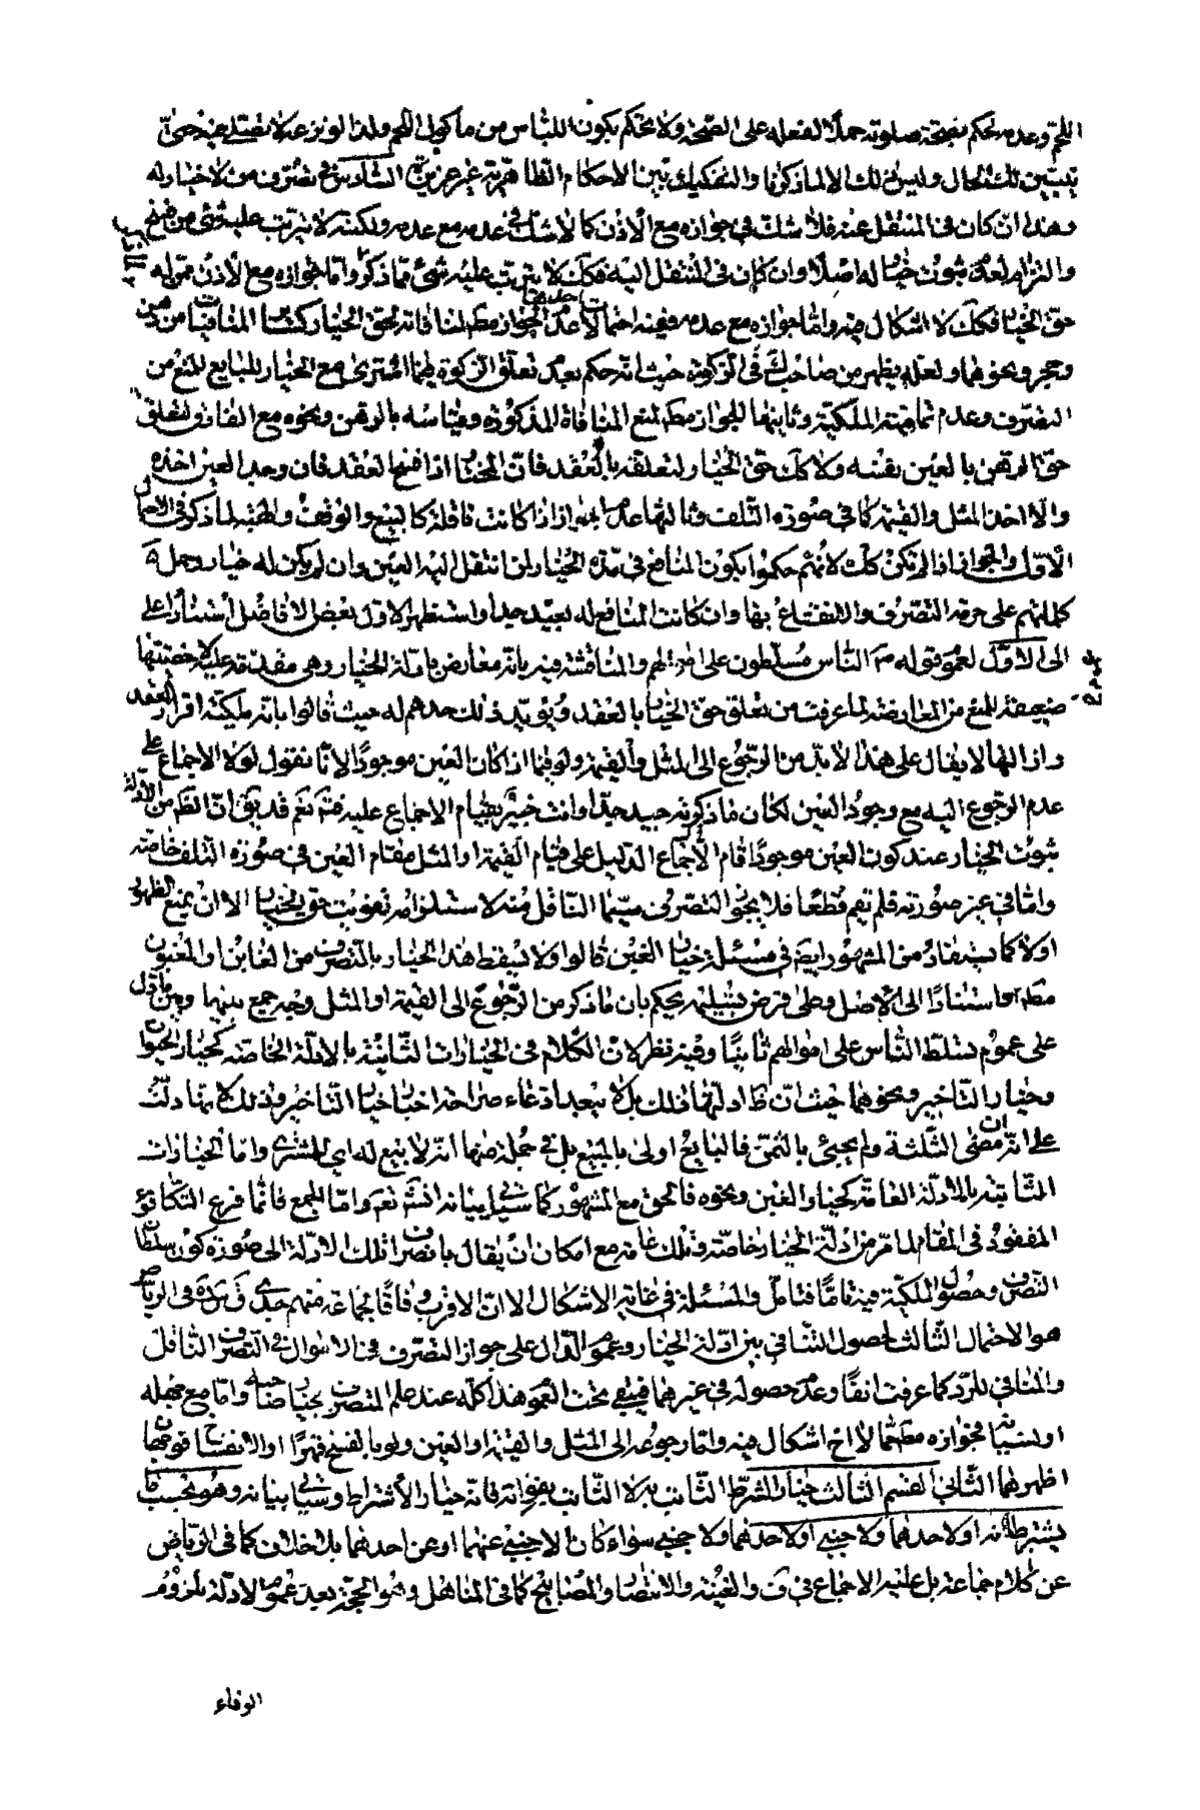 اللحم وعدمه لحكم بصحة صلوته حملا لفعله على الصحة ولا يحكم بكون اللباس من ماكول اللحم ولذا لو نزعه لا نصلى فيه حتى
يتبين لك الحال وليس ذلك الا لما ذكرنا والتفكيك بين الاحكام الظاهرية غير عزيز السادس في تصرف من لا خيار له
وهذا ان كان فى المنتقل عنه فلا شك في جوازه مع الاذن كما لا شك في عدمه مع عدمه ولكنه لا يترتب عليه شئ من فسخ
والتزام لعدم ثبوت خيار له اصلا وان كان فى المنتقل اليه فكك لا يترتب عليه شئ مما ذكر واما جوازه مع الاذن ممن له
حق الخيار فكك لا اشكال فيه واما جوازه مع عدمه ففيه احتمالات احدها عدم الجواز مطلقا لمنافاته لحق الخيار كسائر المنافيات من رهن
وحجر ونحوهما ولعله يظهر من صاحب لك في الزكوة حيث انه حكم بعدم تعلق الزكوة فيما اشترى مع الخيار للبايع للمنع من
التصرف وعدم تمامية الملكية وثانيها الجواز مطلقا لمنع المنافاة المذكورة وقياسه بالرهن ونحوه مع الفارق لتعلق
حق الرهن بالعين بنفسه ولا كك حق الخيار لتعلقه بالعقد فان المختار اذا فسخ العقد فان وجد العين اخذه
والا اخذ المثل والقيمة كما في صورة التلف وثالثها عدم الجواز اذا كانت ناقلة كالبيع والوقف والهبة لما ذكر فى الاحتمال
الاول والجواز اذا لم تكن كك لانهم حكموا بكون المنافع فى مدة الخيار لمن انتقل اليه العين وان لم يكن له خيار وحمل
كلماتهم على حرمة التصرف والانتفاع بها وان كانت المنافع له بعيد جدا واستظهر الاول بعض الافاضل استنادا على
الى الاول لعموم قوله ص الناس مسلطون على اموالهم والمناقشة فيه بانه معارض بادلة الخيار وهى مقدمة عليه لاخصيتها
ضعيفة للمنع من المعارضة لما عرفت من تعلق حق الخيار بالعقد ويؤيد ذلك حدهم له حيث قالوا بانه ملكية اقرار العقد
وازالتها لا يقال على هذا لا بد من الرجوع الى المثل والقيمة ولو فيما اذا كان العين موجودا لانا نقول لولا الاجماع على
عدم الرجوع اليه مع وجود العين لكان ما ذكرته جيد جدا وانت خبير بقيام الاجماع عليه فتم نعم قد يق ان الظ من الادلة
ثبوت الخيار عند كون العين موجودا قام الاجماع الدليل على قيام القيمة او المثل مقام العين فى صورة التلف خاصة
واما في غير صورته فلم يقم قطعا فلا يجوز التصرف سيما الناقل منه لاستلزامه تفويت حق ذى الخيار الا ان يمنع الظهور
اولا كما يستفاد من المشهور ايضا في مسئلة خيار الغبن قالوا ولا يسقط هذا الخيار بالتصرف من الغابن او المغبون
مطلقا استنادا الى الاصل وعلى فرض تسليمه يحكم بان ما ذكر من الرجوع الى القيمة او المثل وجه جمع بينهما وبين ما دل
على عموم تسلط الناس على اموالهم ثانيا وفيه نظر لان الكلام فى الخيارات الثابتة بالادلة الخاصة كخيار الحيوان
وخيار التاخير ونحوهما حيث ان ظ ادلتها ذلك بل لا يبعد ادعاء صراحة اخبار خيار التاخير فى ذلك لانها دلت
على انه ان مضى الثلثة ولم يجيئ بالثمن فالبايع اولى بالمبيع بل في جملة منها انه لا بيع له اي للمشتري واما الخيارات
الثابتة بالادلة العامة كخيار الغبن ونحوه فالحق مع المشهور كما سياتي بيانه انشم نعم واما الجمع فانما فرع التكافؤ
المفقود فى المقام لما مر من ادلة الخيار خاصة وتلك عامة مع امكان ان يقال بانصراف تلك الادلة الى صورة كون سلطان
التصرف وحصول الملكية فيه تاما فتامل والمسئلة في غاية الاشكال الا ان الاقرب وفاقا لجماعة منهم جدي فى الرياض
هو الاحتمال الثالث لحصول التنافي بين ادلة الخيار وعموم الدال على جواز التصرف فى الاموال في التصرف الناقل
والمنافي للرد كما عرفت انفا وعدم حصوله في غيرهما فيبقى تحت العموم هذا كله عند علم المتصرف بخيار صاحبه واما مع جهله
او نسيانه فجوازه مطلقا مما لا اشكال فيه واما رجوعه الى المثل والقيمة او العين ولو بالفسخ قهرا او الانفساخ فوجهان
اظهرهما الثاني القسم الثالث خيار الشرط الثابت به لا الثابت بفواته فانه خيار الاشتراط وسياتي بيانه وهو بحسب ما
يشترطانه او لاحدهما ولاجنبي او لاحدهما ولاجنبي سواء كان الاجنبي عنهما او عن احدهما بلا خلاف كما فى الرياض
عن كلام جماعة بل عليه الاجماع فى ف والغنية والانتصار والمصابيح كما فى المناهل وهو الحجة بعد عموم الادلة بلزوم
الوفاء